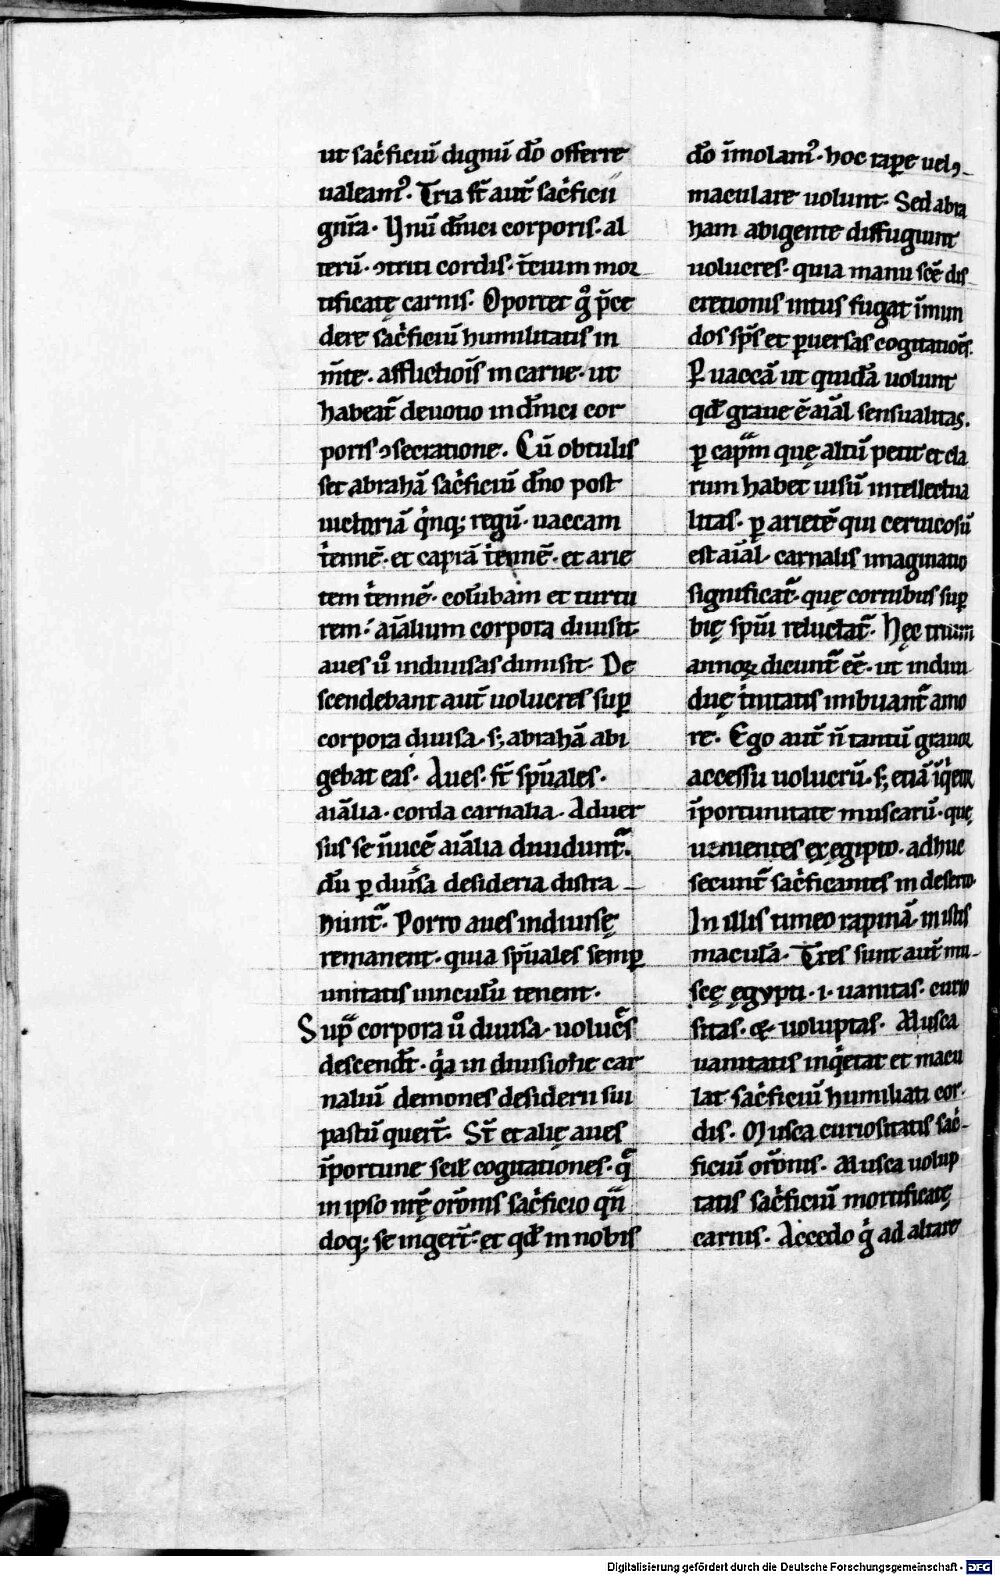 ut sac̓ficiū dignū dō offerre
ualeam᷒. Tria st̄ aut̄ sac̓ficii
gn̄ra. Unū dn̄ici corporis. al
terū. ↄtriti cordis. t̓cium mor
tificatę carnis. Oportet gͦ p̄ce
dere sac̓ficiū humilitatis in
m̄te. afflictiōis in carne. ut
habeat̄ deuotio in dn̄ici cor
poris ↄsecratione. Cū obtulis
set abrahā sac̓ficiū dn̄o post
uictoriā qͥnqꝫ regū. uaccam
tͥennē. et caprā tͥennē. et arie
tem tͥennē. colūbam et turtu
rem. aīalium corpora diuisit.
aues uͦ indiuisas dimisit. De
scendebant aut̄ uolucres suꝑ
corpora diuisa. sꝫ abrahā abi
gebat eas. Aues. st̄ sp̄uales.
aīalia. corda carnalia. Aduer
sus se īuicē aīalia diuidunt̄.
dū ꝑ diu̓sa desideria distra
hunt̄. Porro aues indiuisę
remanent. quia sp̄uales semꝑ
unitatis uinculū tenent.
Supᵃ corpora uͦ diuisa. uoluc̓s
descendt̄. qͥa in diuisione car
naliū demones desiderii sui
pastū quert̄. St̄ et alię aues
īportune scil̄ cogitationes. qᵃ
in ipso nr̄ę orōnis sac̓ficio qn̄
doqꝫ se ingert̄. et qd̄ in nobis
dō īmolam᷒. hoc raꝑe uel
maculare uolunt. Sed abra
ham abigente diffugiunt
uolucres. quia manu scē dis
cretionis intus fugat īmun
dos sp̄s et ꝑuersas cogitatiōes.
Ꝑ uaccā ut quidā uolunt
qd̄ graue ē aīal sensualitas.
ꝑ capᵃm quę altū petit et cla
rum habet uisū intellectua
litas. ꝑ arietē qui ceruicosū
est aīal. carnalis imaginatio
significat̄. quę cornibus suꝑ
bię sp̄ui reluctat̄. Hęc trium
annoꝝ dicunt̄ eē. ut indiui
duę tͥnitatis imbuant̄ amo
re. Ego aut̄ n̄ tantū grauor
accessu uolucrū. sꝫ etiā īqͥetor
īportunitate muscarū. quę
uenientes ex egipto. adhuc
secunt̄ sac̓ficantes in deserto.
In illis timeo rapinā. in istis
maculā. Tres sunt aut̄ mu
scę egypti. i. uanitas. curio
sitas. & uoluptas. Musca
uanitatis inqͥetat et macu
lat sac̓ficiū humiliati cor
dis. Musca curiositatis sac̓
ficiū orōnis. Musca uolup
tatis sac̓ficiū mortificatę
carnis. Accedo gͦ ad altare
Digitalisierung gefördert durch die Deutsche Forschungsgemeinschaft - DFG